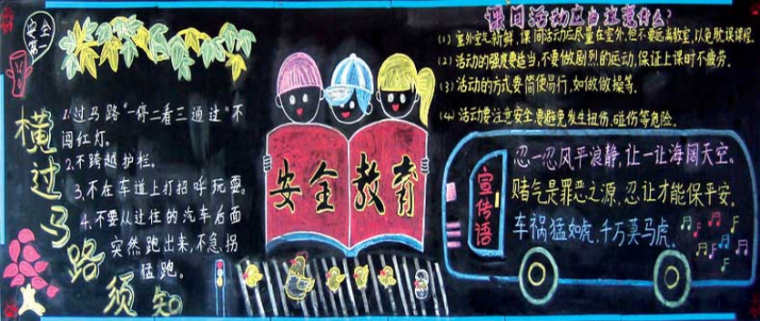 安全第一
横过马路须知
1.过马路“一停二看三通过”不
闯红灯。
2.不跨越护栏。
3.不在车道上打招呼玩耍。
4.不要从过往的汽车后面
突然跑出来,不急拐
猛跑。
安全教育
课间活动应当注意什么?
(1)室外空气新鲜,课间活动应尽量在室外,但不要远离教室,以免耽误课程。
(2)活动的强度要适当,不要做剧烈的运动,保证上课时不疲劳。
(3)活动的方式要简便易行,如做做操等。
(4)活动要注意安全,要避免发生扭伤,碰伤等危险。
宣传语
忍一忍风平浪静,让一让海阔天空。
赌气是罪恶之源,忍让才能保平安。
车祸猛如虎,千万莫马虎。